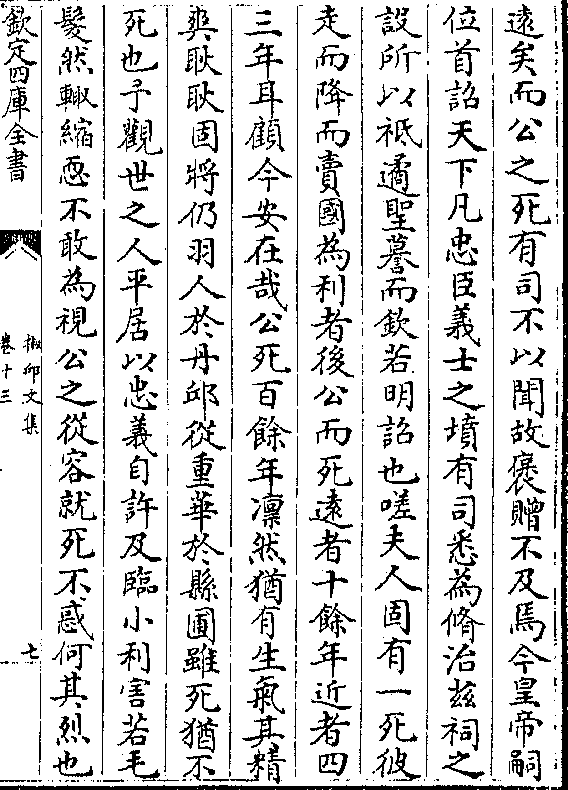 遠矣而公之死有司不以聞故褒贈不及焉今皇帝嗣
位首詔天下凡忠臣義士之墳有司悉為脩治茲祠之
設所以祗遹聖謩而欽若明詔也嗟夫人固有一死彼
走而降而賣國為利者後公而死遠者十餘年近者四
三年耳顧今安在哉公死百餘年凛然猶有生氣其精
爽耿耿固將仍羽人於丹邱從重華於縣圃雖死猶不
死也予觀世之人平居以忠義自許及臨小利害若毛
髪然輙縮恧不敢為視公之從容就死不惑何其烈也
欽定四庫全書
椒邱文集
卷十三
七